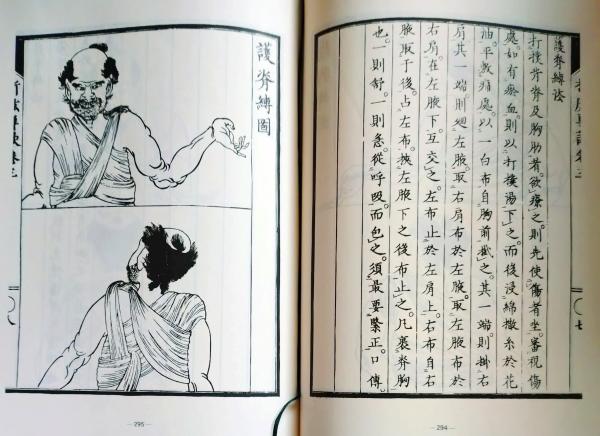 護脊縛法
打撲背脊及胸肋者。欲療之。則先使傷者坐。審視傷
處。如有瘀血。則以打撲湯下之。而後浸綿撒糸於花
油。平敷痛處。以一白布自胸前截之。其一端則掛右
肩。其一端則廻左腋。取右肩布於左腋。取左腋布於
右肩。在左腋下。互交之。左布止於左肩上。右布自右
腋取于後。占左布。挾左腋下之後布止之。凡裹脊胸
也。一則舒。一則急。從呼吸而包之。須最要緊正。口傳。
七
—294—
護脊縛圖
八
—295—